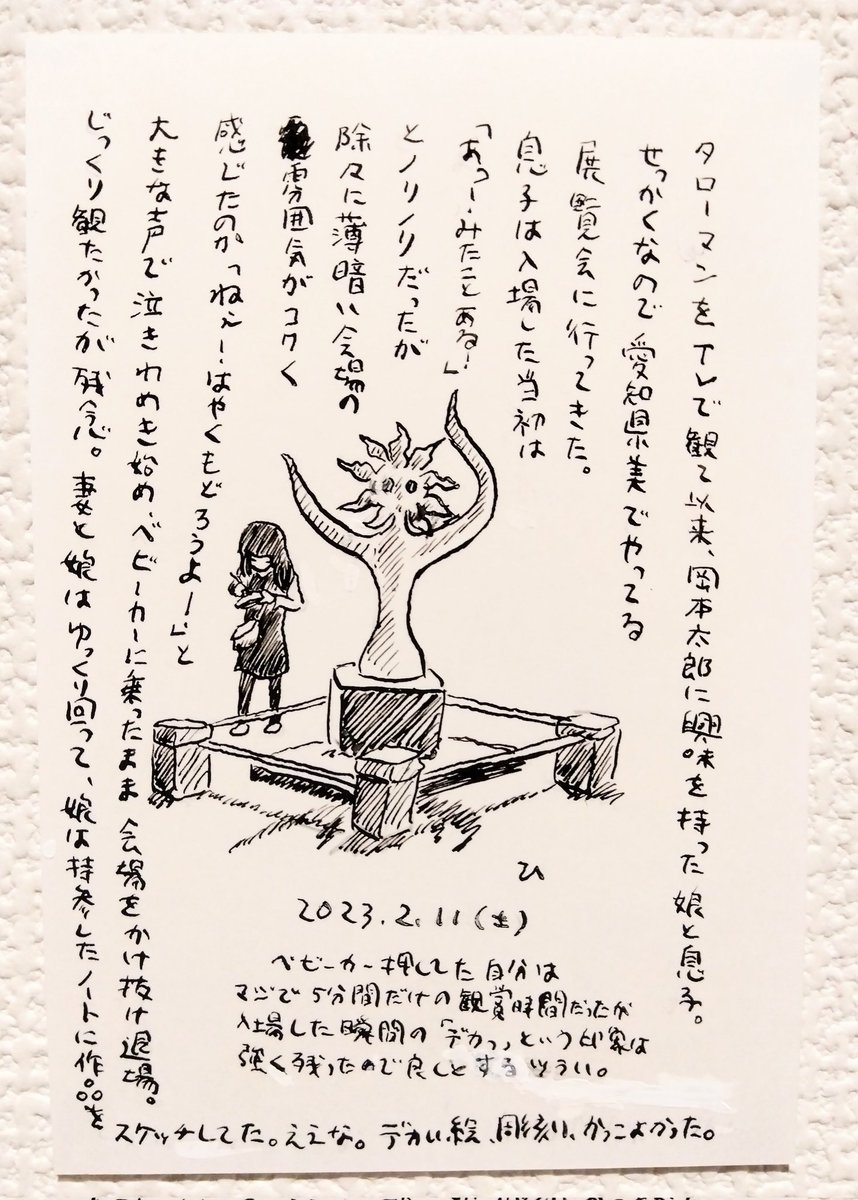 タローマンをTVで観て以来、岡本太郎に興味を持った娘と息子。
せっかくなので愛知県美でやってる
展覧会に行ってきた。
息子は入場した当初は
「あっー！みたことある！」
とノリノリだったが
除々に薄暗い会場の
雰囲気がコワく
感じたのか「ねぇー！はやくもどろうよー！」と
大きな声で泣きわめき始め、ベビーカーに乗ったまま会場をかけ抜け退場。
じっくり観たかったが残念。妻と娘はゆっくり回って、娘は持参したノートに作品を
スケッチしてた。ええな。デカい絵、彫刻、かっこよかった。
ひ
2023.2.11(土)
ベビーカー押してた自分は
マジで5分間だけの観賞時間だったが
入場した瞬間の「デカっ」という印象は
強く残ったので良しとするツラい。